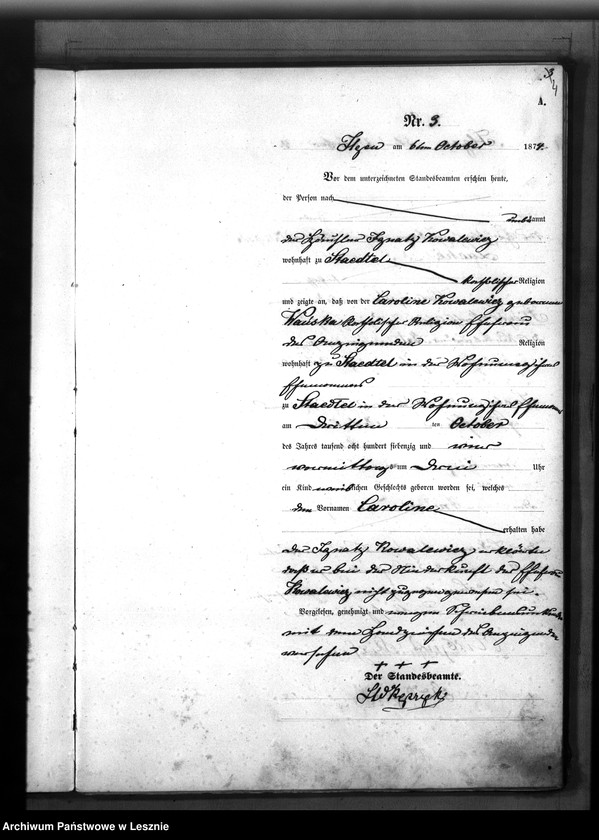 3
4
A.
Nr. 3.
am 6ten October 1874.
Vor dem unterzeichneten Standesbeamten erschien heute,
der Person nach
kannt
der Häusler Ignatz Kowalewicz
wohnhaft zu Staedtel
katholischer Religion
und zeigte an, daß von der Caroline Kowalewicz geborenen
katholischer Religion Ehefrau
des Anzeigenden Religion
wohnhaft zu Staedtel in der Wohnung ihres
Ehemannes
zu Staedtel in der Wohnung ihres Ehemannes
am dritten ten October
des Jahres tausend acht hundert siebenzig und vier
vormittags um drei Uhr
ein Kind weiblichen Geschlechts geboren worden sei, welches
den Vornamen Caroline
erhalten habe
Der Ignatz Kowalewicz erklärte
daß er bei der Niederkunft der Ehefrau
Kowalewicz nicht zugegen gewesen sei.
Vorgelesen, genehmigt und wegen
mit dem Handzeichen des Anzeigenden
versehen
+ + +
Der Standesbeamte.
Archiwum Państwowe w Lesznie